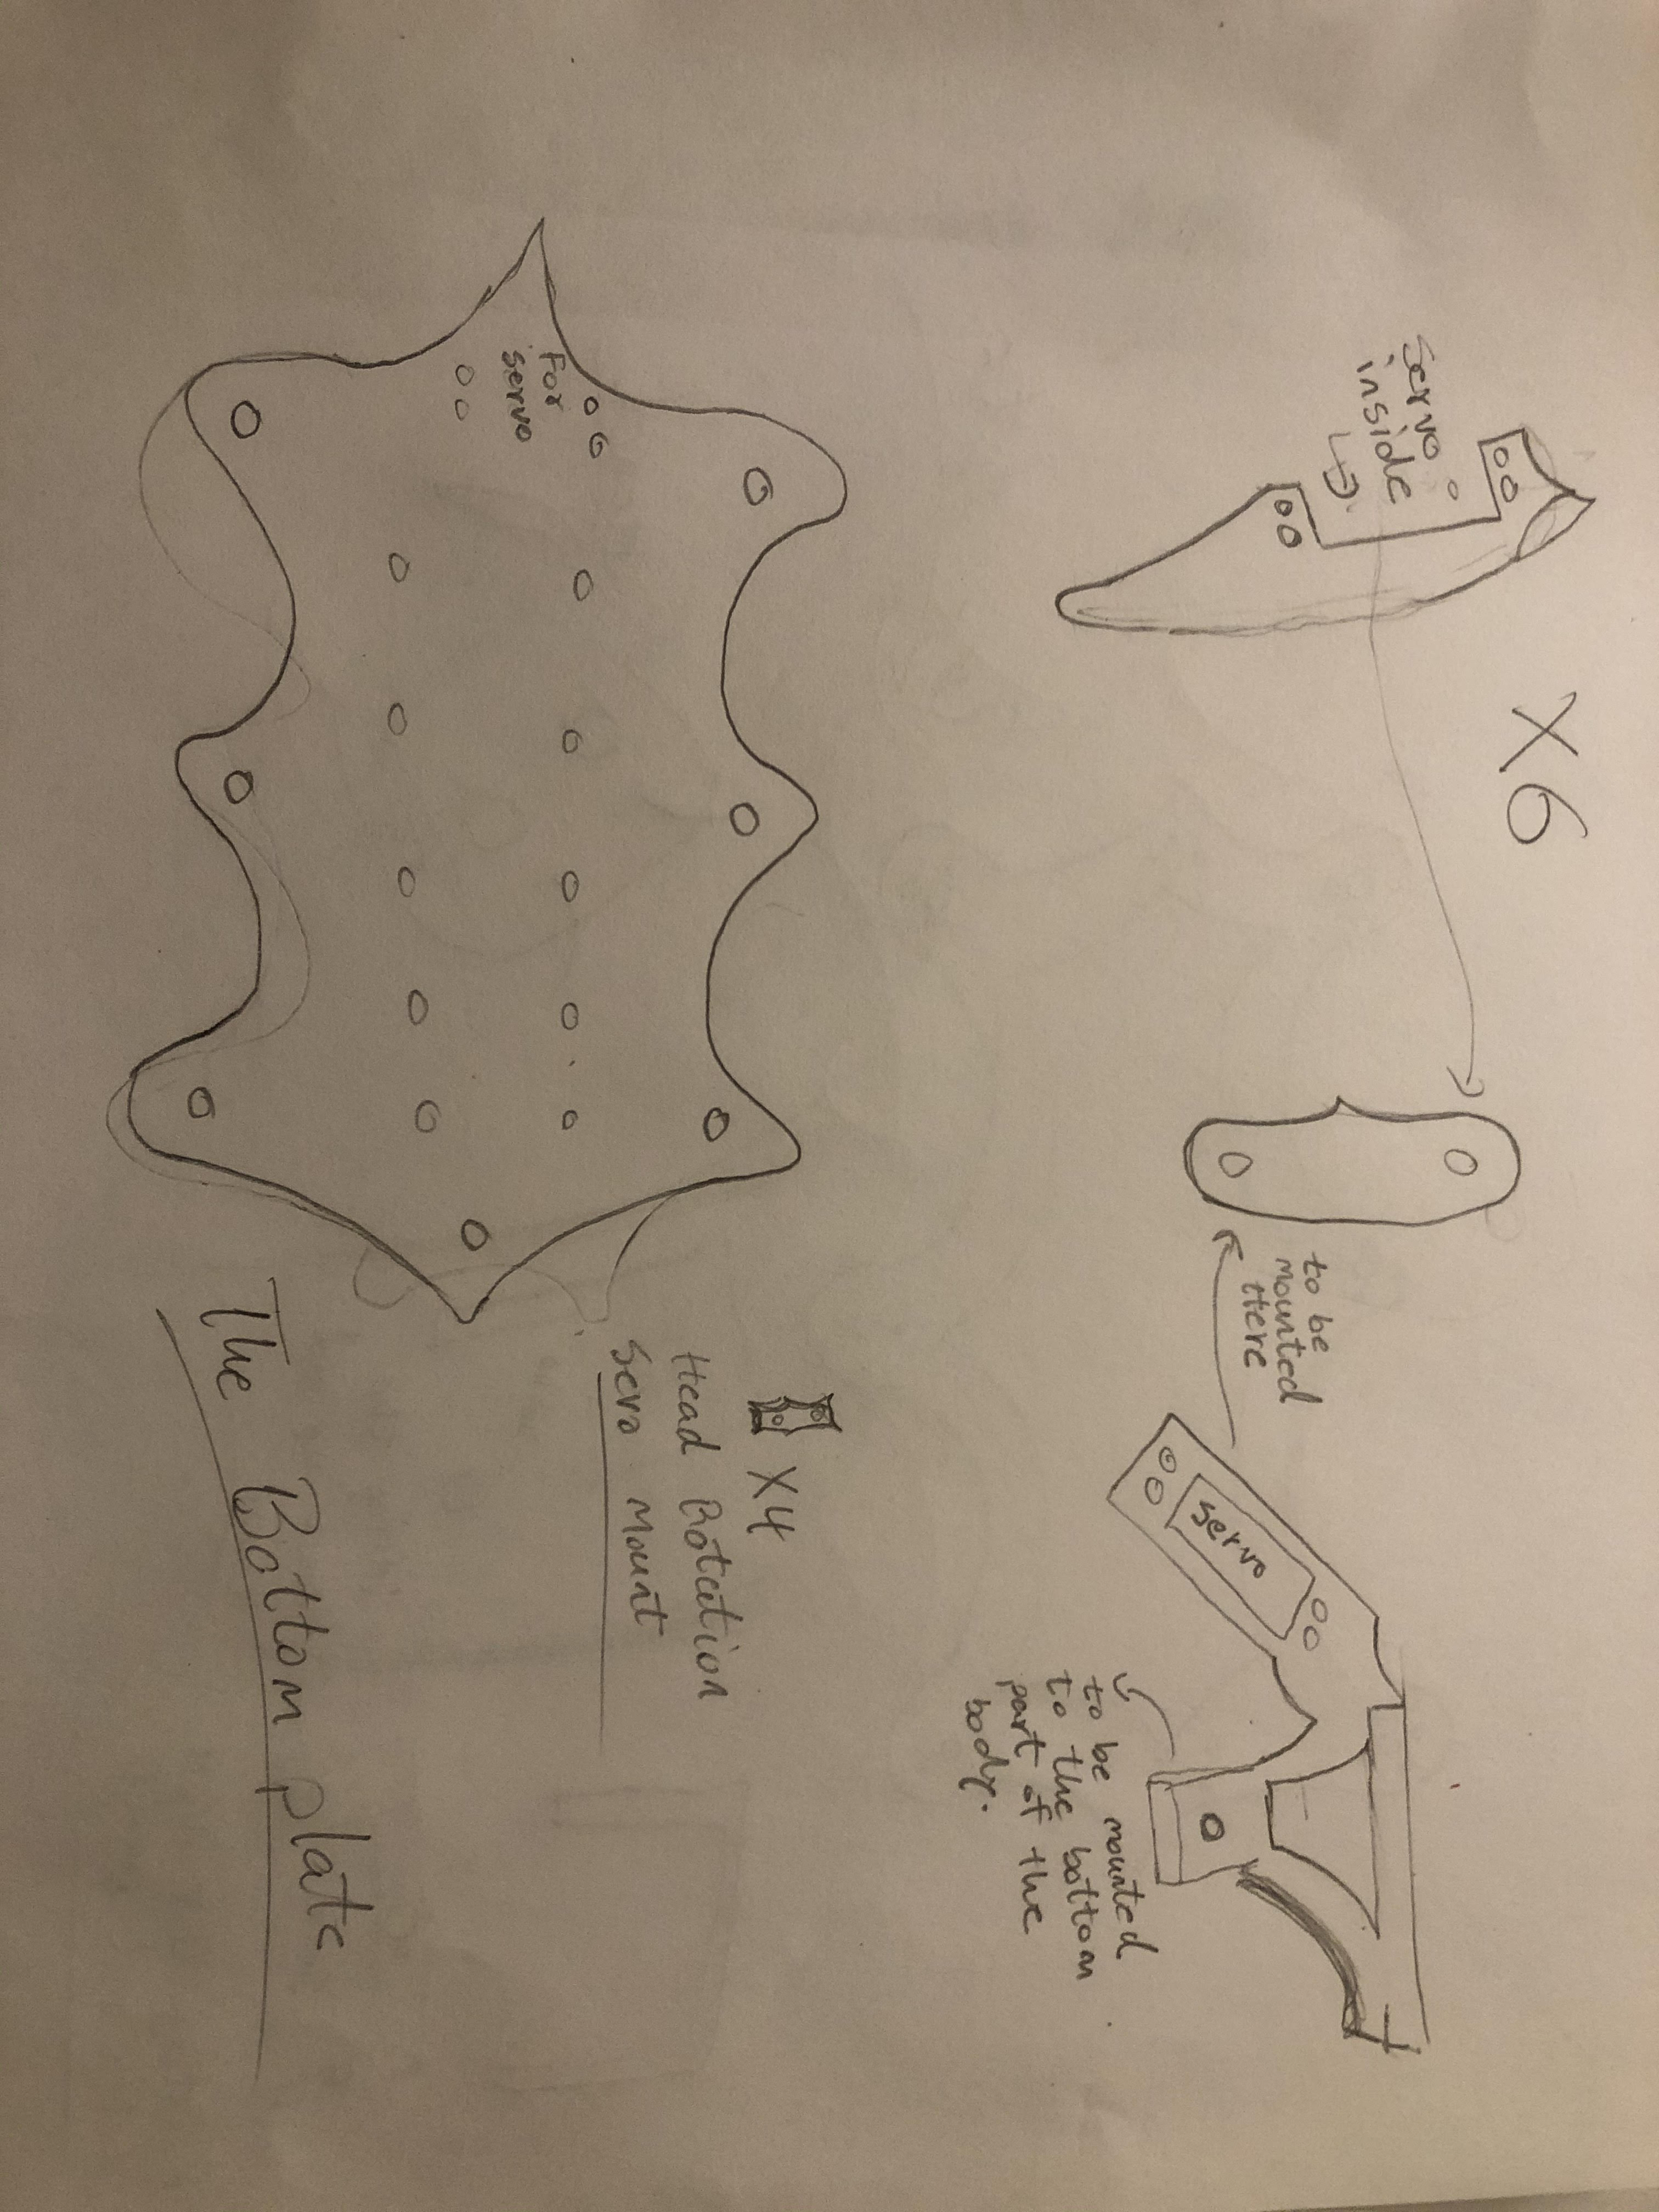 Servo
inside
X6
to be
mounted
Here
Servo
to be mounted
to the bottom
part of the
body.
For
servo
X4
Head Rotation
Servo Mount
The Bottom plate